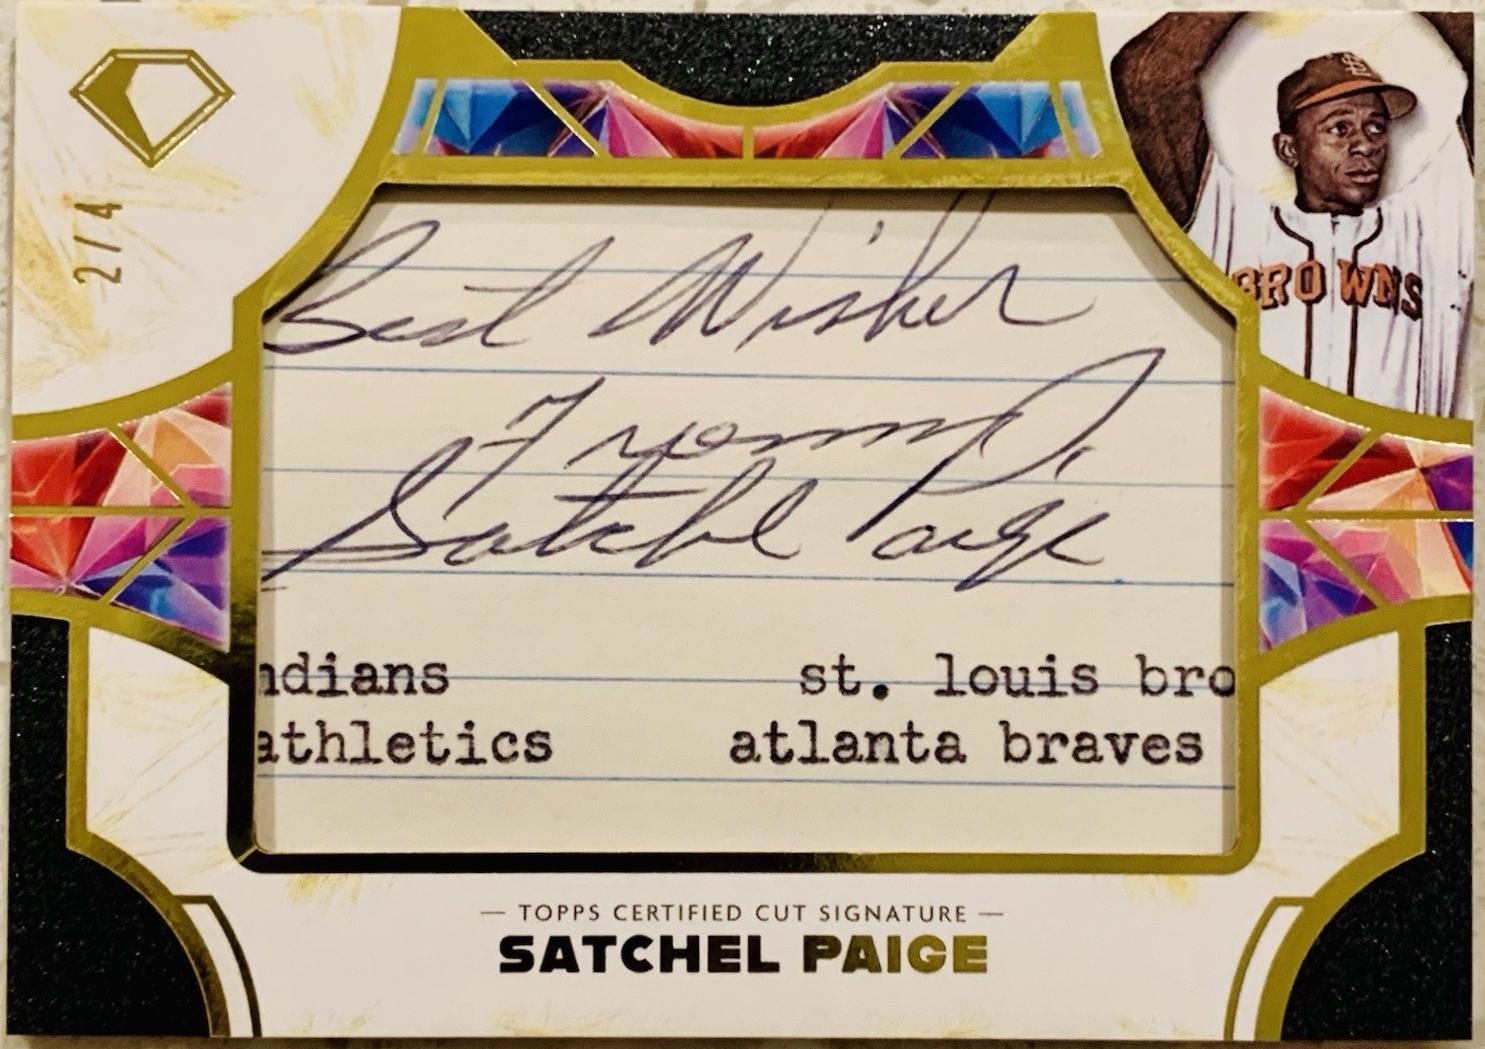 2/4
BROWNS
Best Wishes
From
Satchel Paige
ndians st. louis bro
athletics atlanta braves
— TOPPS CERTIFIED CUT SIGNATURE —
SATCHEL PAIGE